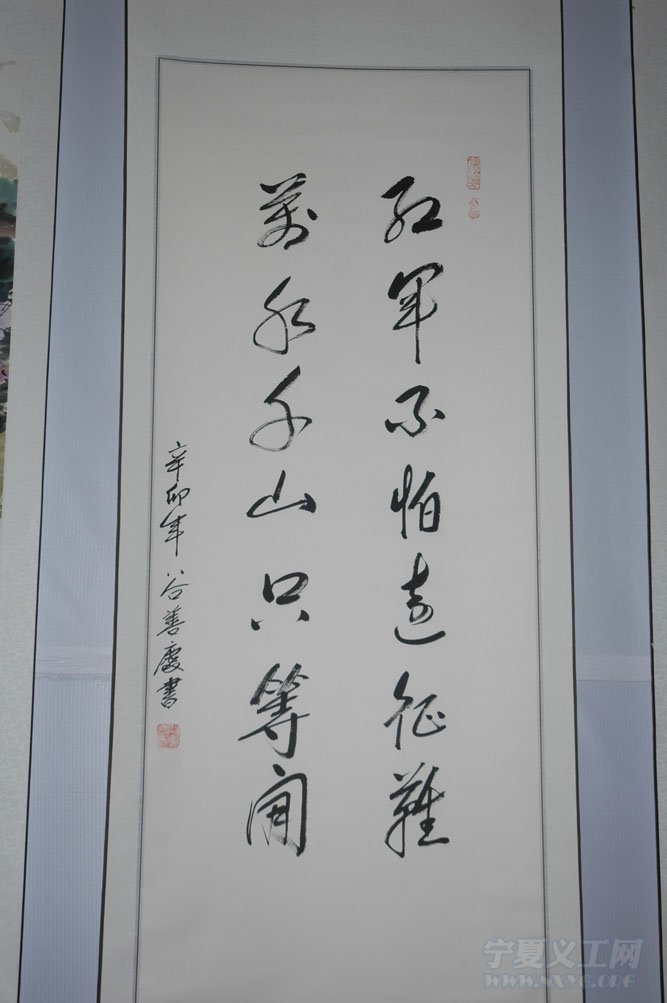 红军不怕远征难
萬水千山只等闲
辛卯年 谷善慶書
宁夏义工网
WWW.NXYG.ORG